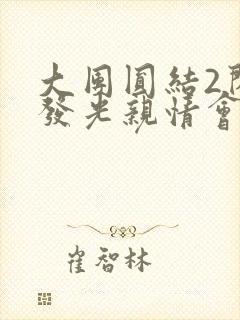 大团圓結2
發光親情會
崔智林